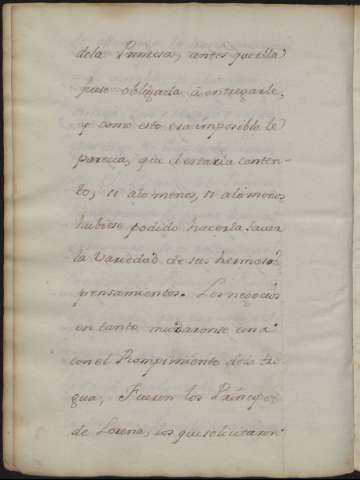 dela Princesa, antes que ella
fuese obligada á entregarle,
y como esto era imposible le
parecia, que el estaria conten-
to, si alo menos, si alo menos
hubiese podido hacerla saver
la Variedad de sus hermosos
pensamientos. Los negocios
en tanto mudaronse
con el Rompimiento dela tre-
gua, Fueron los Principes
de Lorena, los que solicitaron